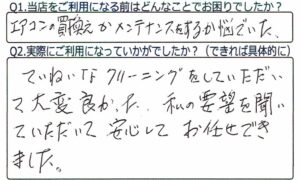 Q1.当店をご利用になる前はどんなことでお困りでしたか？
エアコンの買換えかメンテナンスをするか悩んでいた。
Q2.実際にご利用になっていかがでしたか？（できれば具体的に）
ていねいなクリーニングをしていただい
て大変良かった。私の要望を聞い
ていただいて安心してお任せでき
ました。